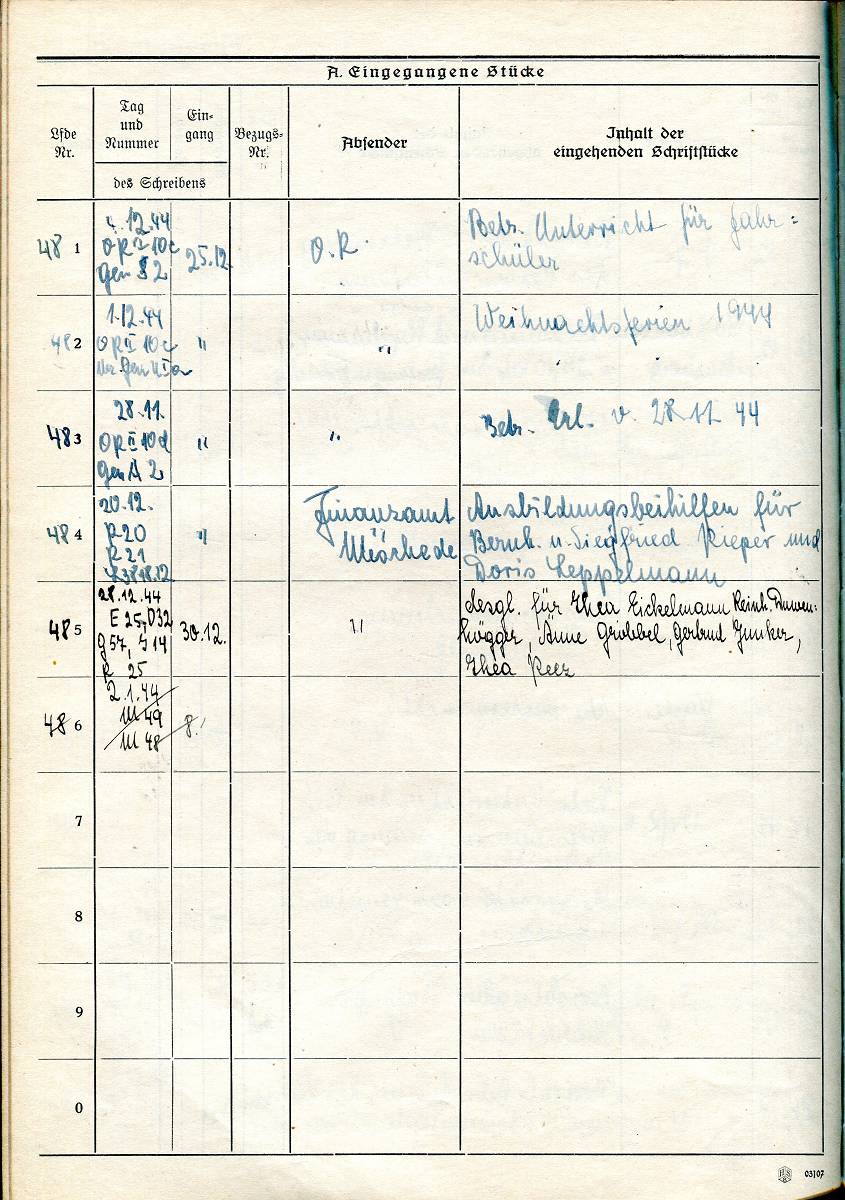 A. Eingegangene Stücke
Lfde Nr.
Tag und Nummer
Ein-gang
des Schreibens
Bezugs-Nr.
Absender
Inhalt der
eingehenden Schriftstücke
48 1
4.12.44
OR II 10c
Gen 2
25.12.
O.R.
Betr. Unterricht für Fahr=
schüler
48 2
1.12.44
OR II 10c
"
"
Weihnachtsferien 1944
48 3
28.11.
OR II 10d
Gen A 2
"
"
Betr. Erl. v. 28.11.44
48 4
20.12.
R20
R21
"
Finanzamt
Meschede
Ausbildungsbeihilfen für
Bernh. u. Siegfried Rieper und
Doris Leppelmann
48 5
28.12.44
E 25, D32
G57, J 14
R 25
30.12.
"
desgl. für Thea Eickelmann Reinh. Duwen-
högger, Änne Grobbel, Gertrud Junker,
Thea
48 6
2.1.44
M 49
M 48
8.
7
8
9
0
03107